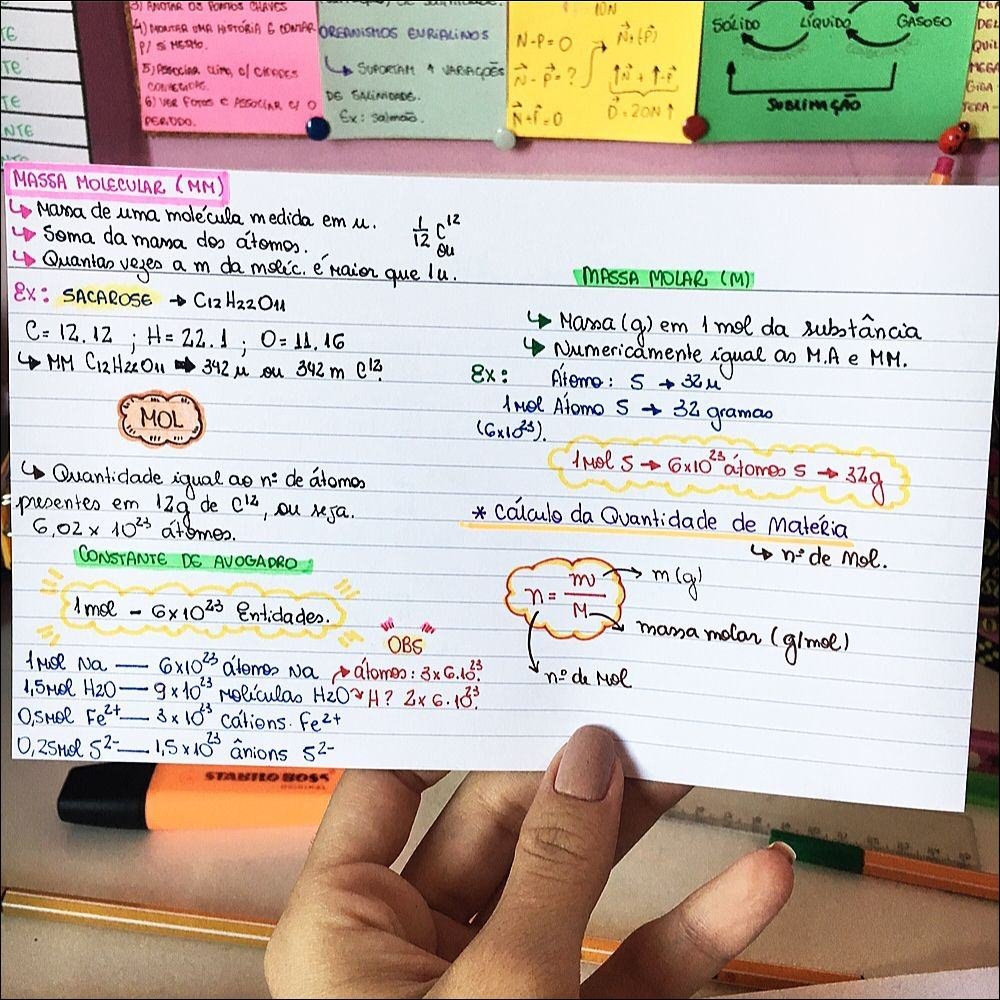 TE
TE
TE
NTE
NTE
3) ANOTAR OS PONTOS CHAVES
4) MONTAR UMA HISTÓRIA E CONTAR
P/ SI MESMO.
5) ASSOCIAR
6) VER FOTOS E ASSOCIAR C/ O
PERÍODO.
ORGANISMOS EURIALINOS
↳ SUPORTAM ↑ VARIAÇÕES
DE SALINIDADE.
Ex: salmão.
10N
N-P=0
N⃗-P⃗=?
N⃗+P⃗=0
N⃗+(P⃗)
↑N⃗+↑-P⃗
D⃗=20N↑
SÓLIDO LÍQUIDO GASOSO
SUBLIMAÇÃO
MASSA MOLECULAR (MM)
↳ Massa de uma molécula medida em u. 1/12 C¹²
↳ Soma da massa dos átomos. ou
↳ Quantas vezes a m da moléc. é maior que 1u.
Ex: SACAROSE → C12H22O11
C= 12.12 ; H= 22.1 ; O= 11.16
↳ MM C12H22O11 ➡ 342 u ou 342 m C¹².
MOL
↳ Quantidade igual ao nº de átomos
presentes em 12g de C¹², ou seja.
6,02 x 10²³ átomos.
CONSTANTE DE AVOGADRO
1mol - 6x10²³ Entidades.
OBS
1mol Na — 6x10²³ átomos Na → átomos: 3x6.10²³.
1,5mol H2O — 9x10²³ moléculas H2O → H? 2x6.10²³.
0,5mol Fe²⁺ — 3x10²³ cátions Fe²⁺
0,25mol S²⁻ — 1,5x10²³ ânions S²⁻
MASSA MOLAR (M)
↳ Massa (g) em 1mol da substância
↳ Numericamente igual as M.A e MM.
Ex: Átomo: S → 32u
1mol Átomo S → 32 gramas
(6x10²³).
1mol S → 6x10²³ átomos S → 32g
* Cálculo da Quantidade de Matéria
↳ nº de mol.
n = m/M
→ m(g)
→ massa molar (g/mol)
nº de mol
STABILO BOSS
ORIGINAL